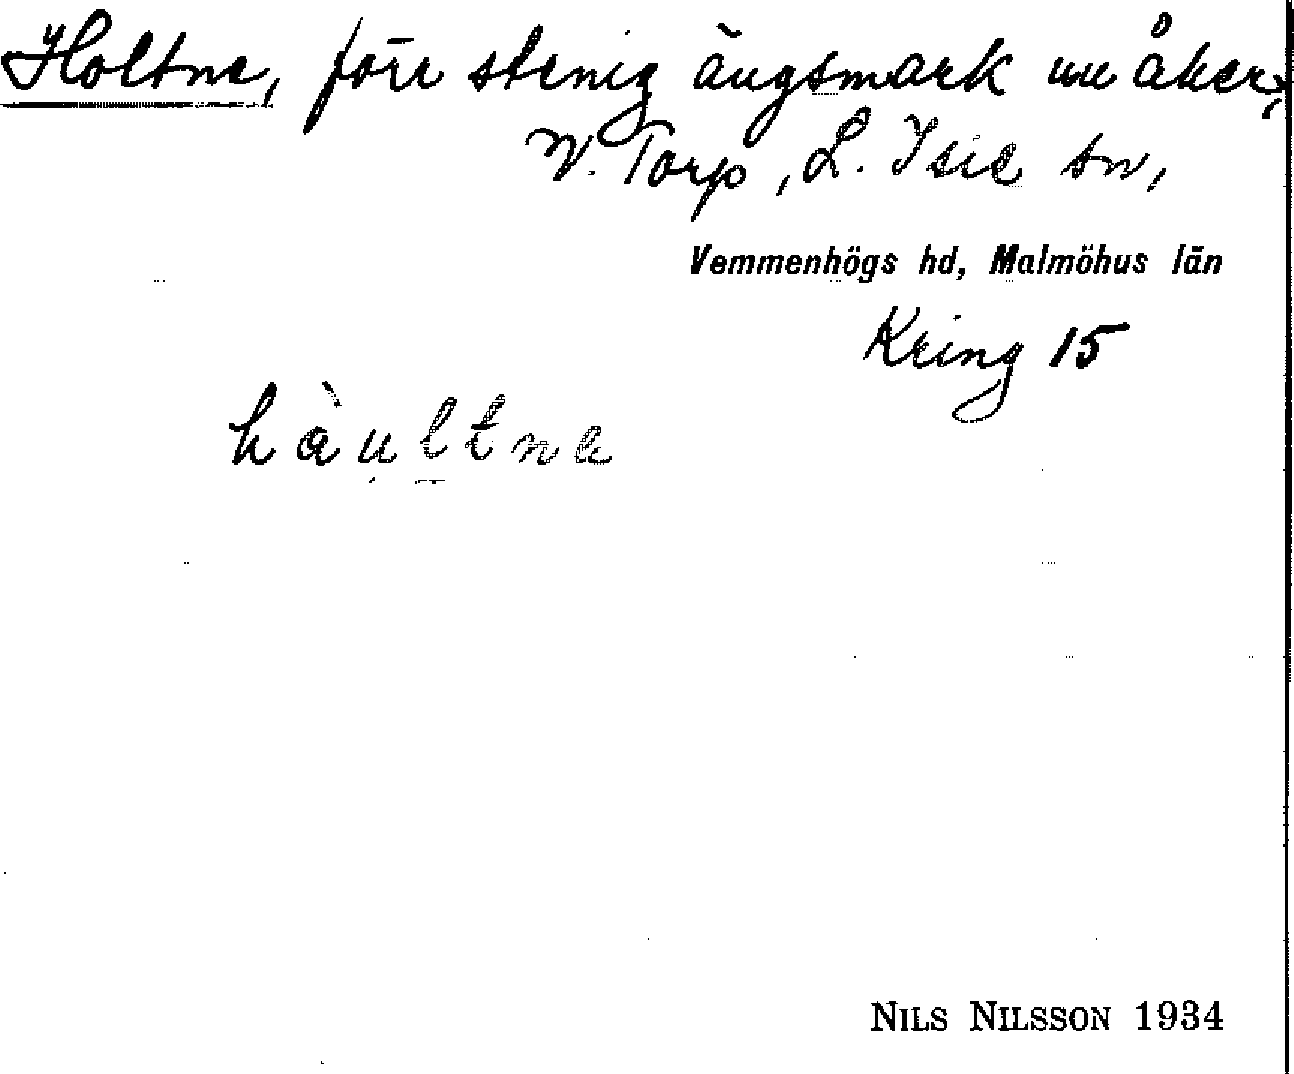 Holtna, förr stenig ängsmark nu åker,
V. Torp, L. Isie sn,
Vemmenhögs hd, Malmöhus län
Kring 15
hàu̥ltna
NILS NILSSON 1934